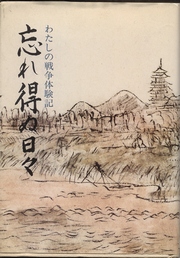 わたしの戦争体験記
忘れ得ぬ日々